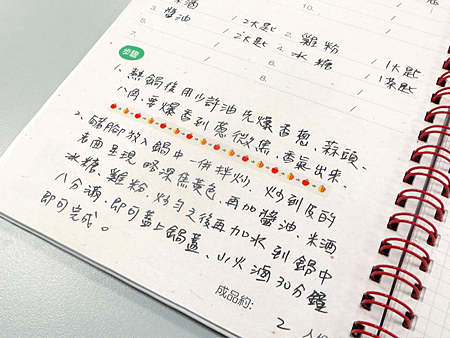 米酒 / 10.
5. 醬油 / 2大匙 2. 雞粉 /
7. / 2大匙 4. 冰糖 / 1大匙
6. / 1茶匙
8. /
步驟
1、熱鍋後用少許油先爆香蔥、蒜頭、
八角,要爆香到蔥微焦香氣出來.
2、豬腳放入鍋中一併拌炒,炒到皮的
表面呈現略深焦黃色,再加醬油、米酒
冰糖、雞粉,炒勻之後再加水到鍋中
八分滿,即可蓋上鍋蓋、小火滷30分鐘
即可完成。
成品約:
2 人份